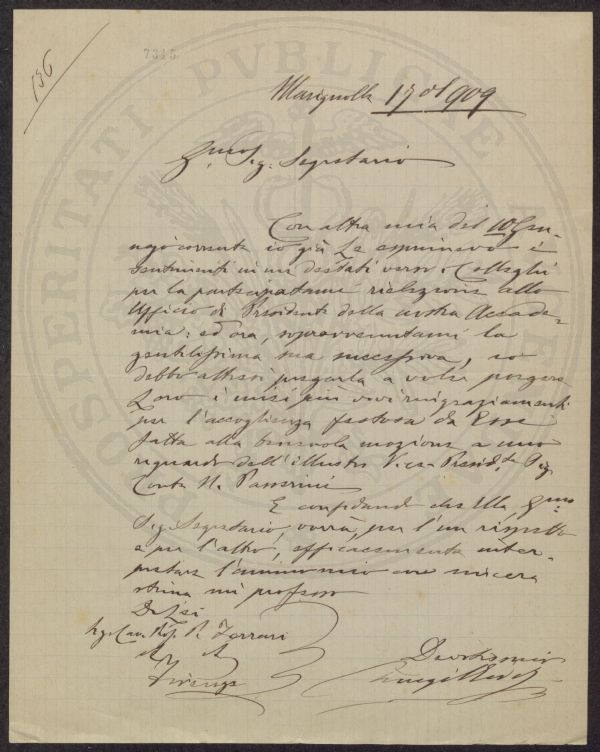 136
7315
Marignolle 17 01 909
Illmo Sig. Segretario
Con altra mia del 10 Giu-
gno corrente io già Le esprimevo i
sentimenti in me destati verso i Colleghi
per la partecipatami rielezione allo
Ufficio di Presidente della nostra Accade-
mia: ed ora, sopravvenutami la
gentilissima sua successiva, io
debbo altresì pregarla a voler porgere
Loro i miei più vivi ringraziamenti
per l'accoglienza festosa da Essi
fatta alla benevola mozione a mio
riguardo dell'illustre Vice Presidte Sig.
Conte N. Passerini
E confidando che Ella, Illmo
Sig. Segretario, vorrà, per l'un rispetto
e per l'altro, efficacemente inter-
pretare l'animo mio con sincera
stima mi professo
Di Lei
Sig. Cav. Prof. P. Ferrari
Firenze
Devotissimo
Luigi
PROSPERITATI PVBLICAE AVGENDAE